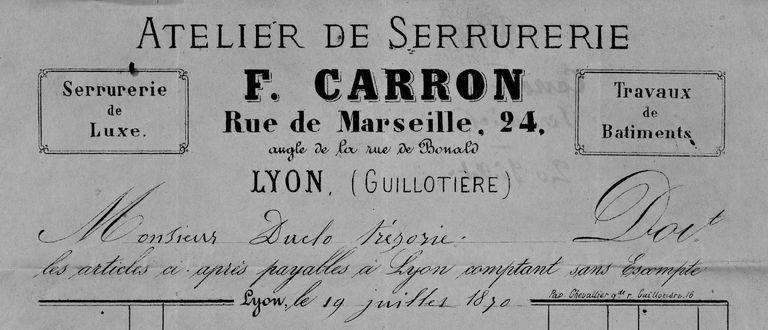 ATELIER DE SERRURERIE
Serrurerie
de
Luxe.
F. CARRON
Rue de Marseille, 24,
angle de la rue de Bonald
LYON, (GUILLOTIÈRE)
Travaux
de
Batiments
Monsieur Duclo Doit
les articles ci-après payables à Lyon comptant sans Escompte
Lyon, le 19 juillet 1870
Pap. Chevallier gde r. Guillotière. 16